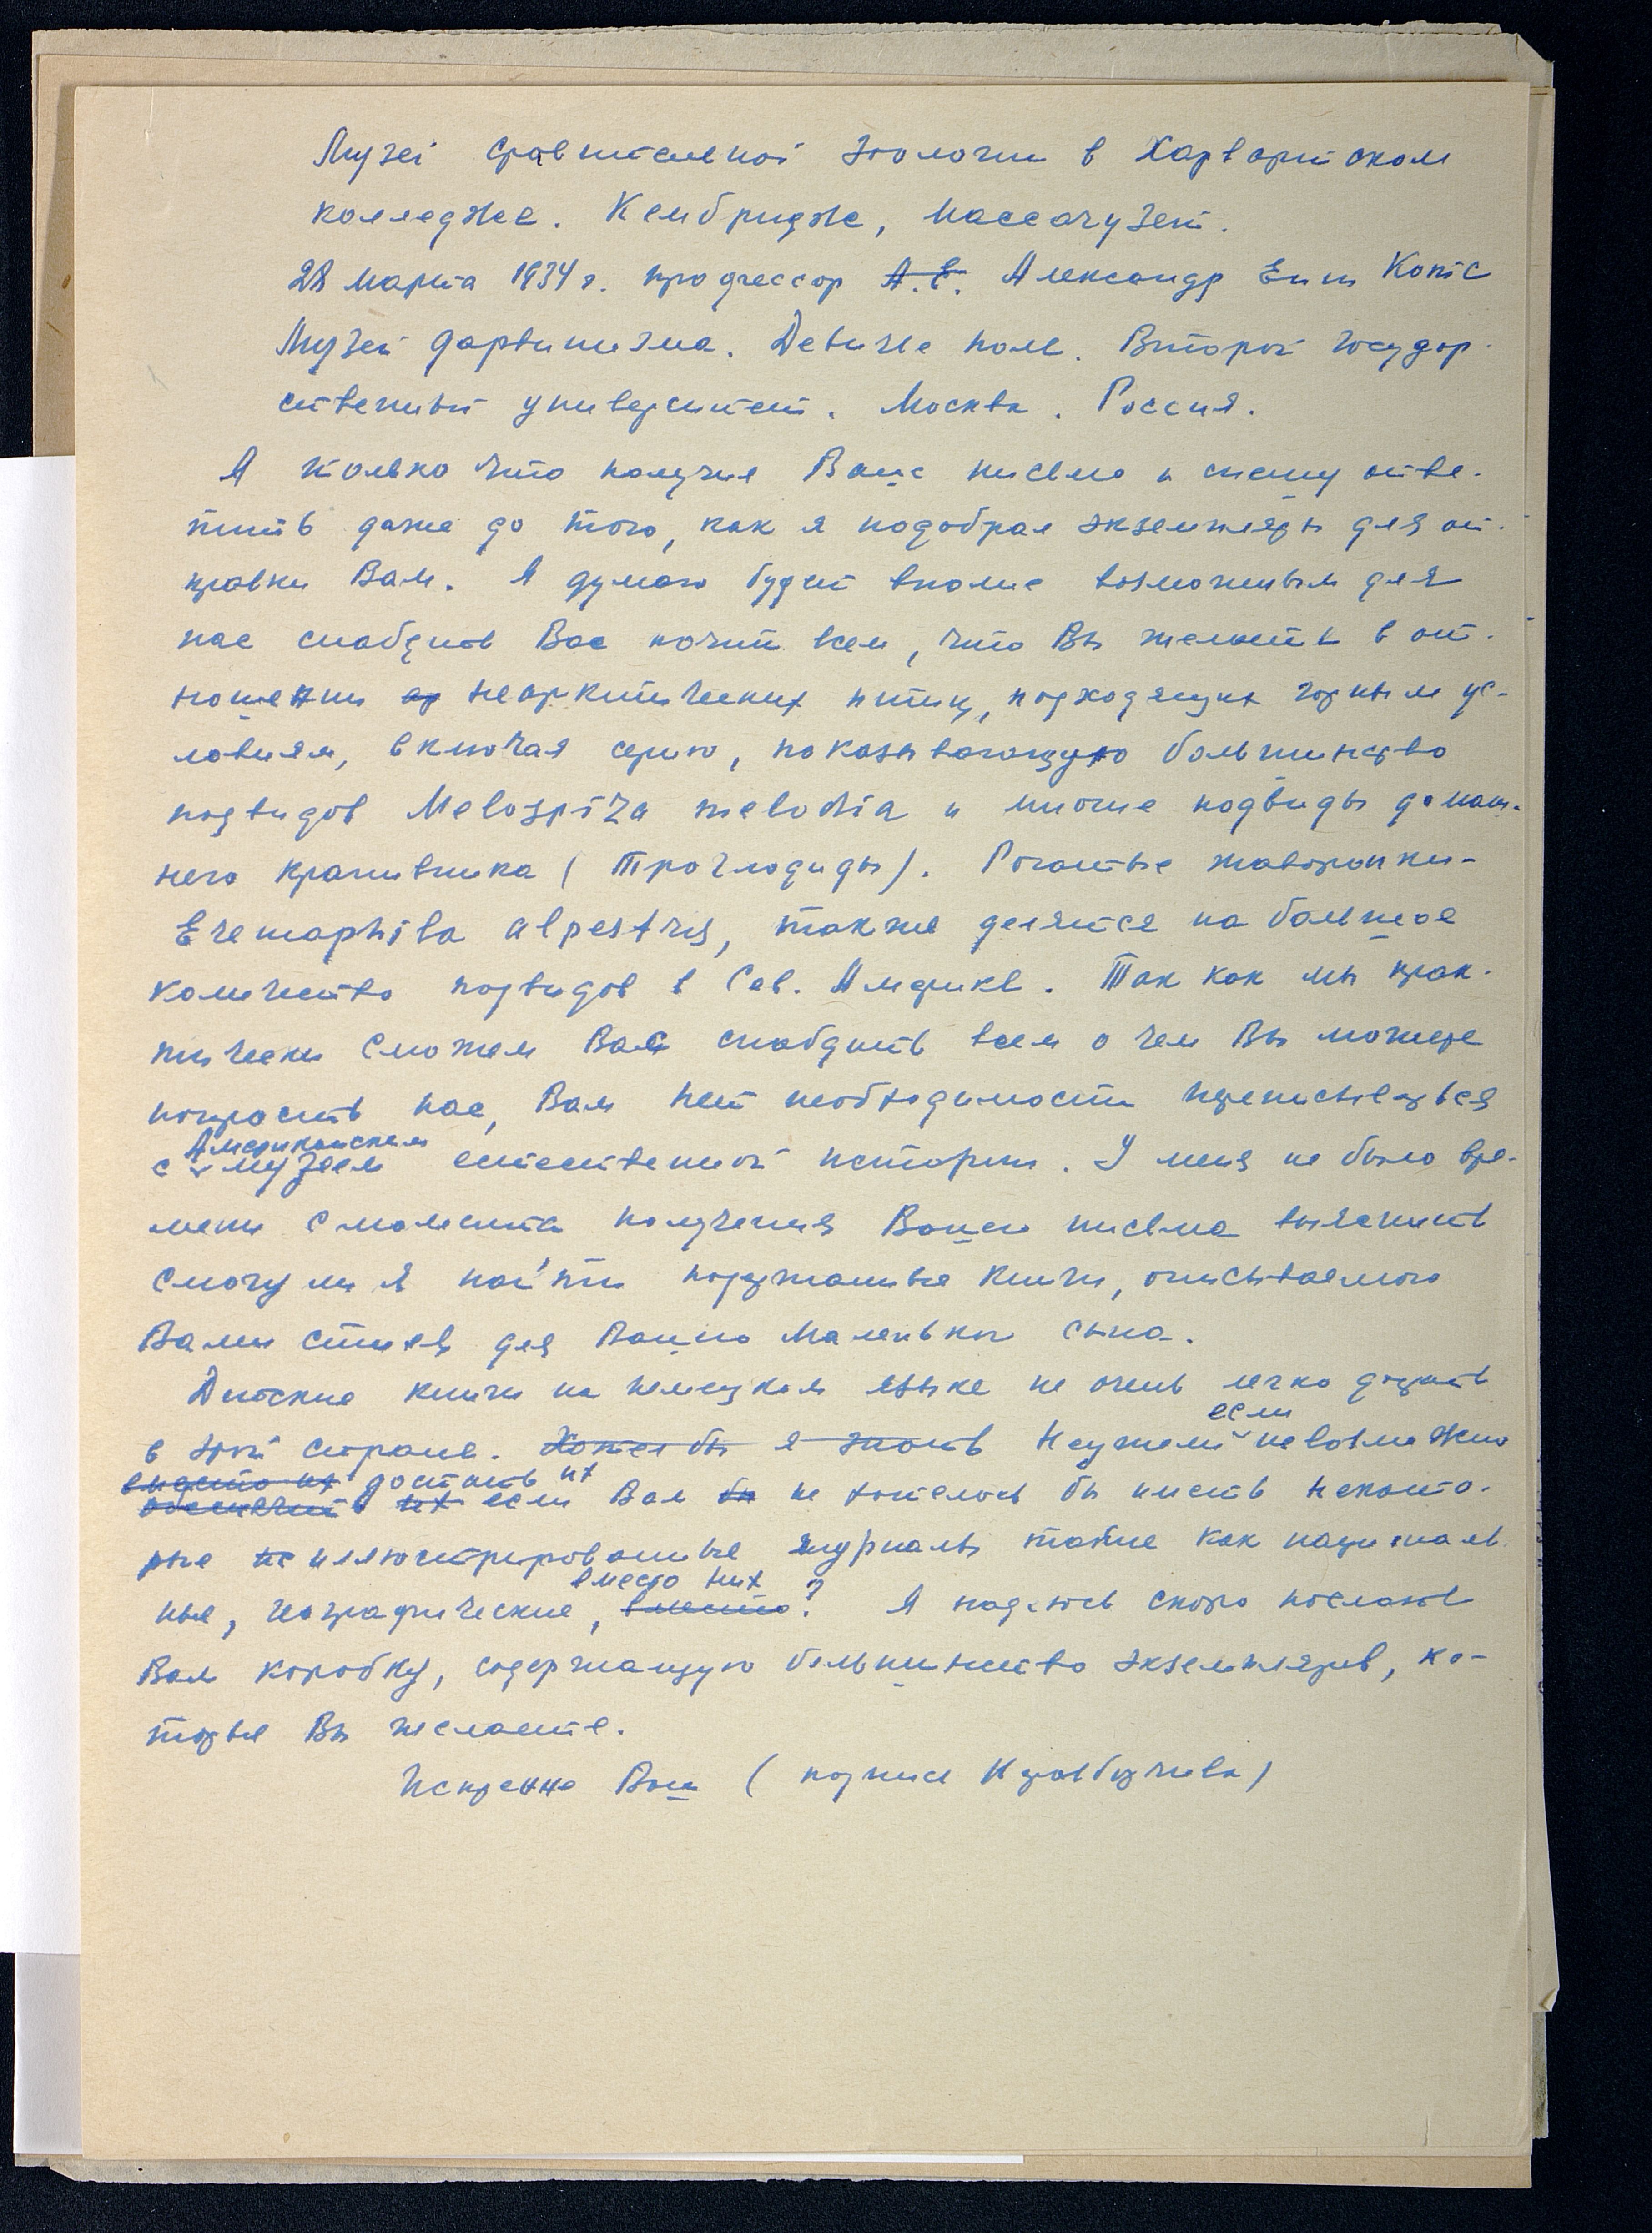 Музей сравнительной зоологии в Харвардском
колледже. Кембридж, Массачузет.
28 марта 1934 г. профессор А.Е. Александр Ерит Котс
Музей дарвинизма. Девичье поле. Второй государ-
ственный университет. Москва. Россия.
Я только что получил Ваше письмо и спешу отве-
тить даже до того, как я подобрал экземпляры для от-
правки Вам. Я думаю будет вполне возможным для
нас снабдить Вас почти всем, что Вы желаете в от-
ношении ар неарктических птиц, подходящих горным ус-
ловиям, включая серию, показывающую большинство
подвидов Melospiza melodia и многие подвиды домаш-
него крапивника (Троглодиды). Рогатые жаворонки-
Eremophila alpestris, также делятся на большое
количество подвидов в Сев. Америке. Так как мы прак-
тически сможем Вас снабдить всем о чем Вы можете
попросить нас, Вам нет необходимости переписываться
Американским
с музеем естественной истории. У меня не было вре-
мени с момента получения Вашего письма выяснить
смогу ли я найти подержанные книги, описываемого
Вами стиля для Вашего маленького сына.
Детские книги на немецком языке не очень легко достать
если
в этой стране. Хотел бы я знать Неужели невозможно
вместо их достать их
обеспечить их если Вам бы не хотелось бы иметь некото-
рые не иллюстрированные журналы такие как националь
вместо них ?
ные, географические, вместо? Я надеюсь скоро послать
Вам коробку, содержащую большинство экземпляров, ко-
торые Вы желаете.
Искренно Ваш (подпись